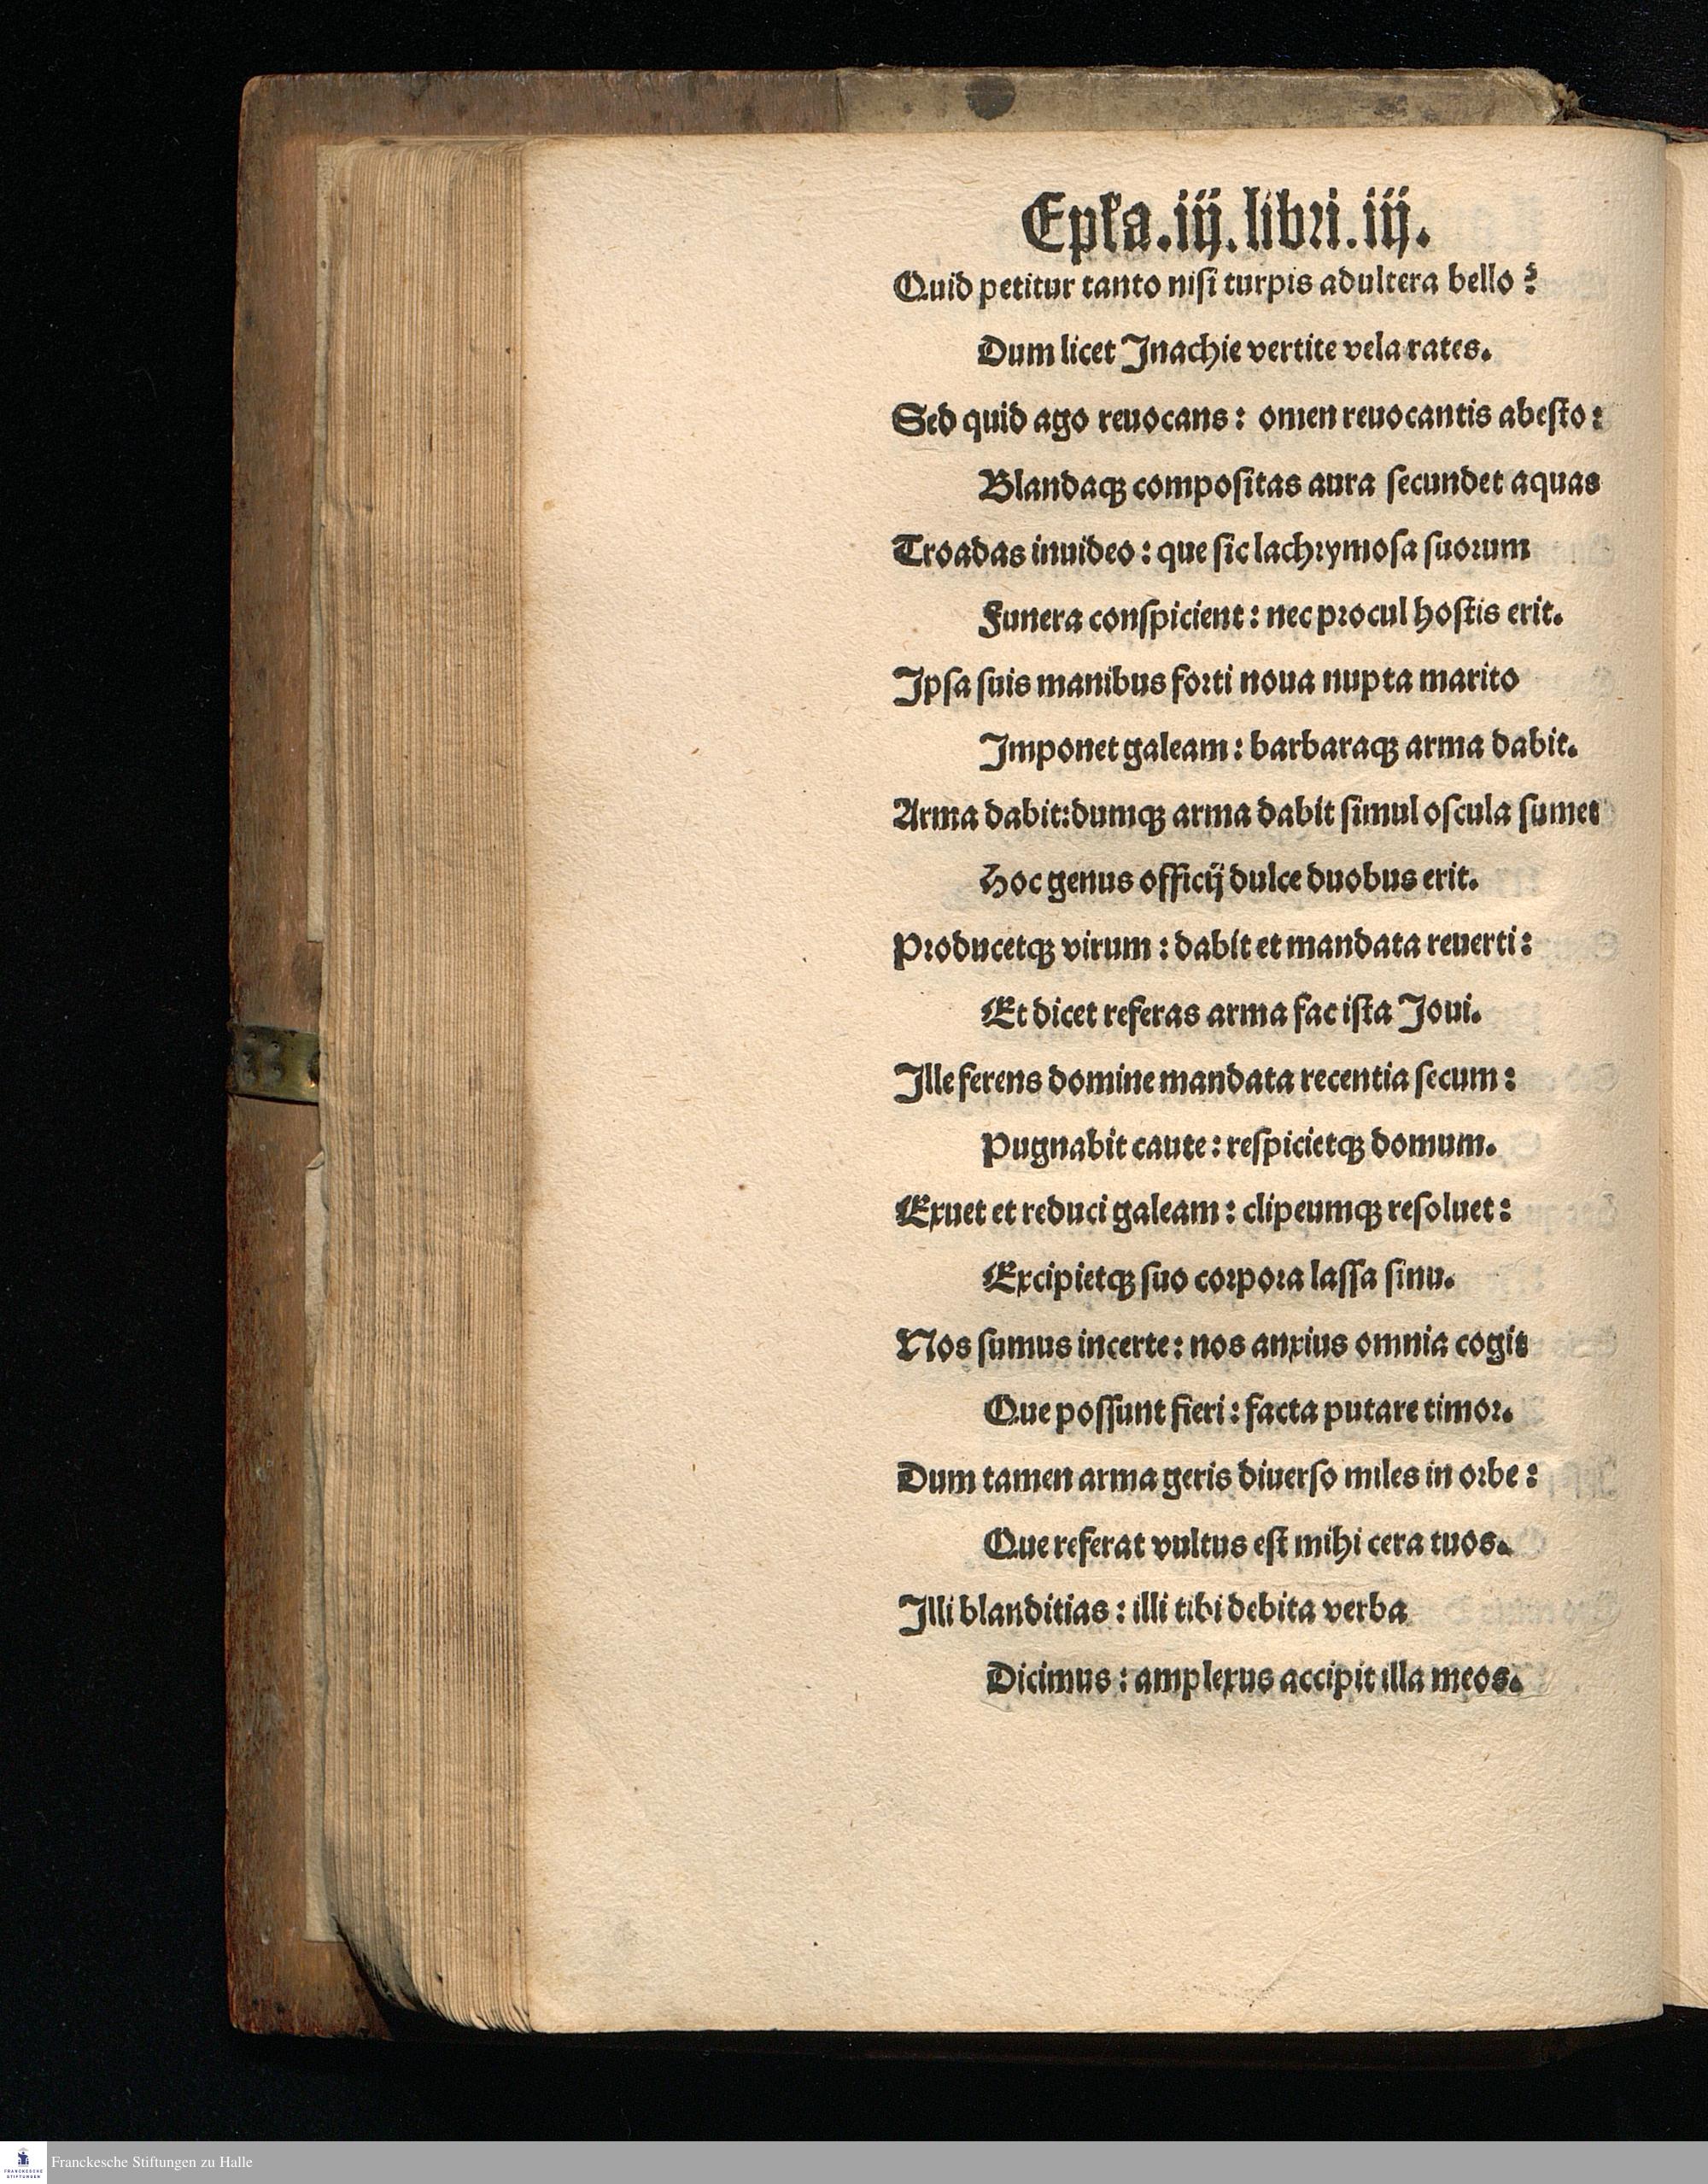 Epla.iij.libri.iij.
Quid petitur tanto nisi turpis adultera bello?
Dum licet Inachie vertite vela rates.
Sed quid ago reuocans: omen reuocantis abesto:
Blandaqꝫ compositas aura secundet aquas
Troadas inuideo: que sic lachrymosa suorum
Funera conspicient: nec procul hostis erit.
Ipsa suis manibus forti noua nupta marito
Imponet galeam: barbaraqꝫ arma dabit.
Arma dabit:dumqꝫ arma dabit simul oscula sumet
Hoc genus officij dulce duobus erit.
Producetqꝫ virum: dabit et mandata reuerti:
Et dicet referas arma fac ista Ioui.
Ille ferens domine mandata recentia secum:
Pugnabit caute: respicietqꝫ domum.
Exuet et reduci galeam: clipeumqꝫ resoluet:
Excipietqꝫ suo corpora lassa sinu.
Nos sumus incerte: nos anxius omnia cogit
Que possunt fieri: facta putare timor.
Dum tamen arma geris diuerso miles in orbe:
Que referat vultus est mihi cera tuos.
Illi blanditias: illi tibi debita verba
Dicimus: amplexus accipit illa meos.
FRANCKESCHE
STIFTUNGEN
Franckesche Stiftungen zu Halle